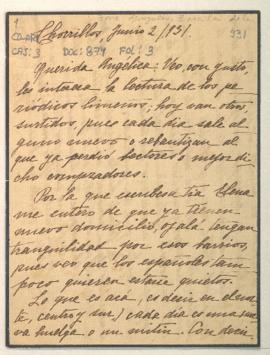 1
931
CAJ: 3 DOC: 879 FOL: 3
Chorrillos, Junio 2/931.
Querida Angélica: Veo, con gusto,
les interesa la lectura de los pe-
riódicos limeños; hoy van otros,
surtidos, pues cada día sale al-
guno nuevo o rebautizan al
que ya perdió lectores o mejor di-
cho compradores.
Por la que escribes a tía Elena
me entero de que ya tienen
nuevo domicilio, ojalá tengan
tranquilidad por esos barrios,
pues veo que los españoles tam-
poco quieren estarse quietos.
Lo que es acá, es decir en el nor-
te, centro y sur, cada día es una nue-
va huelga o un mitin. Con decir-